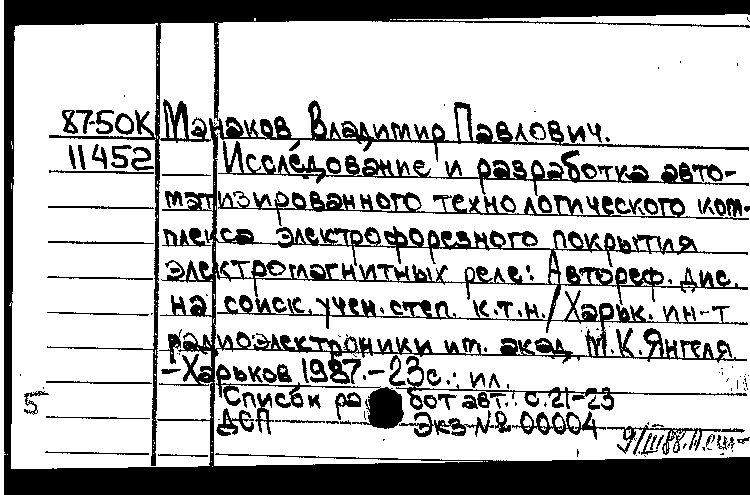 87-50К Манаков Владимир Павлович.
11452 Исследование и разработка авто-
матизированного технологического ком-
плекса электрофорезного покрытия
электромагнитных реле: Автореф. дис.
на соиск. учен. степ. к.т.н. / Харьк. ин-т
радиоэлектроники им. акад. М.К. Янгеля
-Харьков 1987.-23с.: ил.
Список работ авт.: с.21-23
5 ДСП Экз № 00004
9/III88.